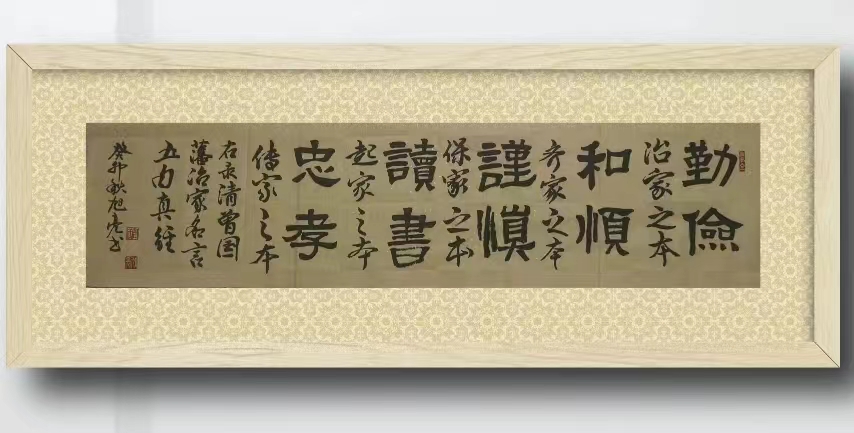 勤儉
治家之本
和順
齐家之本
謹慎
保家之本
讀書
起家之本
忠孝
传家之本
右录清曾国
藩治家名言
五句真经
癸卯秋旭宏书